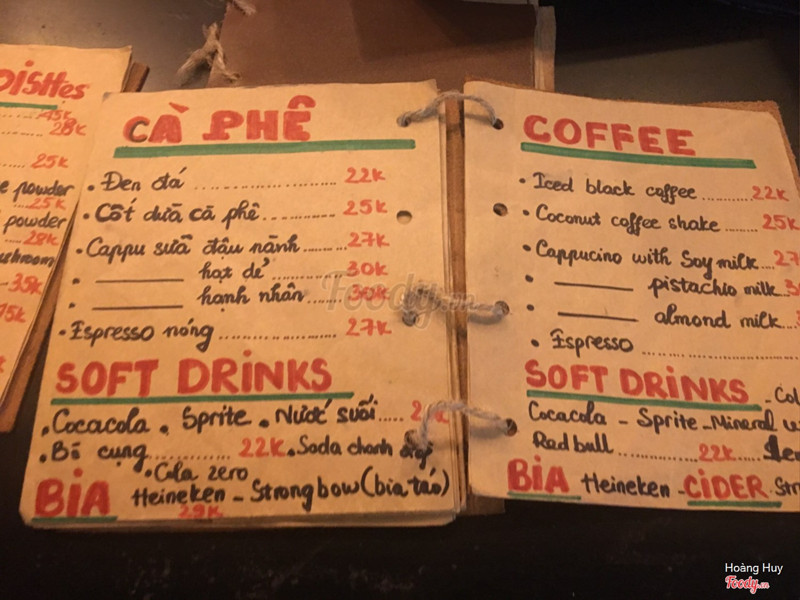 DISHes
45k
28k
25k
e powder
25k
powder
28k
ushroom
35k
75k
CÀ PHÊ
• Đen đá ........ 22k
• Cốt dừa cà phê ........ 25k
• Cappu sữa đậu nành ........ 27k
• ———— hạt dẻ ........ 30k
• ———— hạnh nhân ........ 30k
• Espresso nóng ........ 27k
SOFT DRINKS
• Cocacola • Sprite • Nước suối .....
• Bò cụng ........ 22k • Soda chanh
• Cola zero
BIA Heineken - Strongbow (bia táo)
29k
COFFEE
• Iced black coffee ........ 22k
• Coconut coffee shake ........ 25k
• Cappucino with Soy milk ....
• ———— pistachio milk.
• ———— almond milk
• Espresso ........
SOFT DRINKS
Cocacola - Sprite - Mineral
Red bull ........ 22k
BIA Heineken - CIDER
Foody.vn
Hoàng Huy
Foody.vn